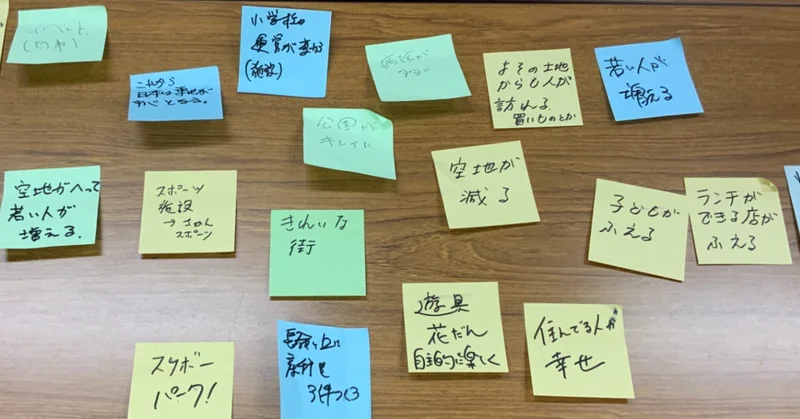 イベント
小学校の
運営が変わる
(施設)
病院が
これから
日本は
公園が
キレイに
よその土地
からも人が
訪れる
買いものとか
若い人が
増える
空地がへって
若い人が
増える
スポーツ
施設
→
スポーツ
きれいな
街
空地が
減る
子どもが
ふえる
ランチが
できる店が
ふえる
スケボー
パーク!
遊具
花だん
自主的に楽しく
住んでる人が
幸せ